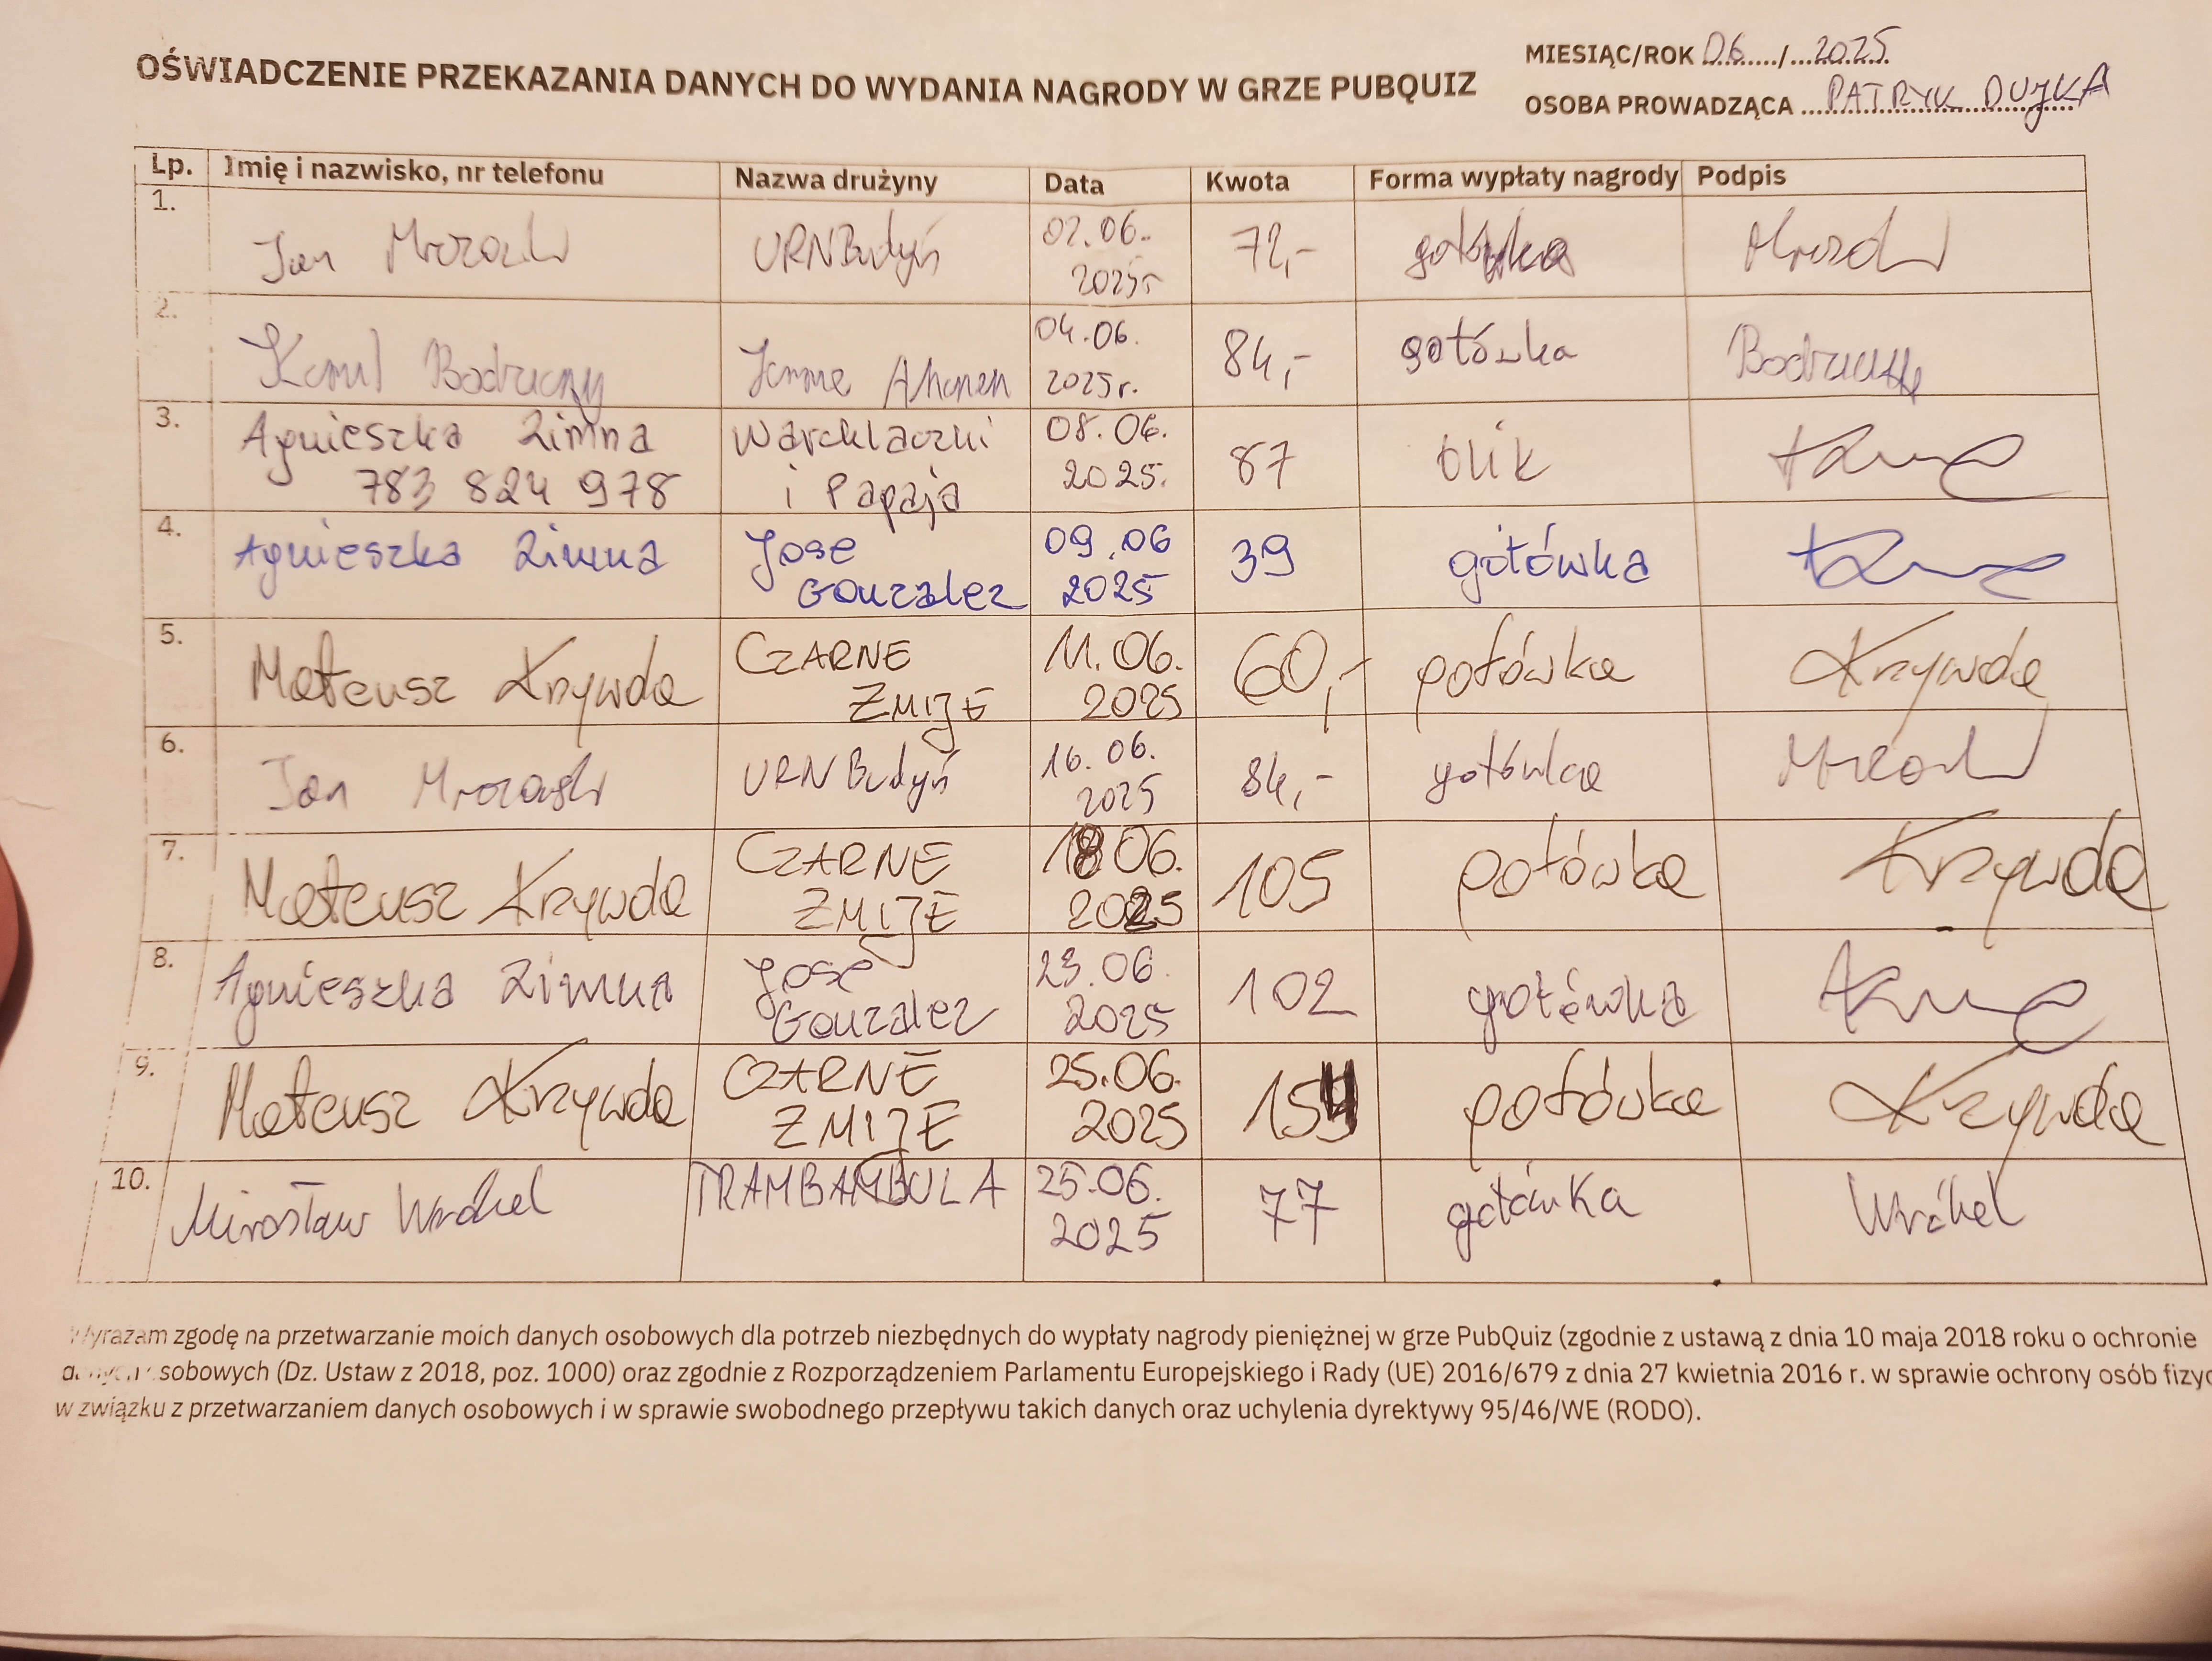 OŚWIADCZENIE PRZEKAZANIA DANYCH DO WYDANIA NAGRODY W GRZE PUBQUIZ
MIESIĄC/ROK 06 / 2025
OSOBA PROWADZĄCA PATRYK DUJKA
Lp. Imię i nazwisko, nr telefonu Nazwa drużyny Data Kwota Forma wypłaty nagrody Podpis
1. Jan URNBudyń 02.06. 2025r 72,- gotówka
2. Kamil Janne Ahonen 04.06. 2025r. 84,- gotówka
3. Agnieszka Zimna 783 824 978 i Papaja 08.06. 2025. 87 blik
4. Agnieszka Zimna Jose Gonzalez 09.06 2025 39 gotówka
5. Mateusz Krzywda CZARNE ŻMIJE 11.06. 2025 60,- gotówka Krzywda
6. Jan URNBudyń 16.06. 2025 84,- gotówka
7. Mateusz Krzywda CZARNE ŻMIJE 18 06. 2025 105 gotówka Krzywda
8. Agnieszka Zimna Jose Gonzalez 23.06. 2025 102 gotówka
9. Mateusz Krzywda CZARNE ŻMIJE 25.06. 2025 154 gotówka Krzywda
10. Mirosław Wróbel TRAMBAMBULA 25.06. 2025 77 gotówka Wróbel
Wyrażam zgodę na przetwarzanie moich danych osobowych dla potrzeb niezbędnych do wypłaty nagrody pieniężnej w grze PubQuiz (zgodnie z ustawą z dnia 10 maja 2018 roku o ochronie
danych osobowych (Dz. Ustaw z 2018, poz. 1000) oraz zgodnie z Rozporządzeniem Parlamentu Europejskiego i Rady (UE) 2016/679 z dnia 27 kwietnia 2016 r. w sprawie ochrony osób fizyc
w związku z przetwarzaniem danych osobowych i w sprawie swobodnego przepływu takich danych oraz uchylenia dyrektywy 95/46/WE (RODO).